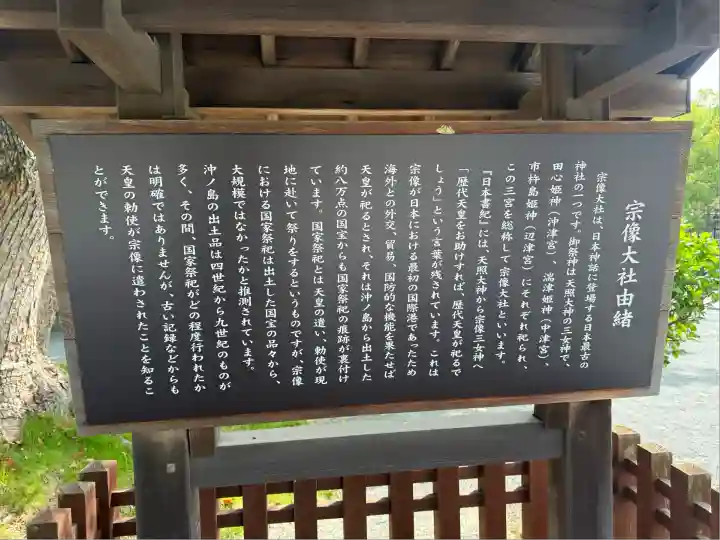 宗像大社由緒
宗像大社は、日本神話に登場する日本最古の
神社の一つです。御祭神は天照大神の三女神で、
田心姫神（沖津宮）、湍津姫神（中津宮）、
市杵島姫神（辺津宮）にそれぞれ祀られ、
この三宮を総称して宗像大社といいます。
『日本書紀』には、天照大神から宗像三女神へ
「歴代天皇をお助けすれば、歴代天皇が祀るで
しょう」という言葉が残されています。これは
宗像が日本における最初の国際港であったため
海外との外交、貿易、国防的な機能を果たせば
天皇が祀るとされ、それは沖ノ島から出土した
約八万点の国宝からも国家祭祀の痕跡が裏付け
ています。国家祭祀とは天皇の遣い、勅使が現
地に赴いて祭りをするというものですが、宗像
における国家祭祀は出土した国宝の品々から、
大規模ではなかったかと推測されています。
沖ノ島の出土品は四世紀から九世紀のものが
多く、その間、国家祭祀がどの程度行われたか
は明確ではありませんが、古い記録などからも
天皇の勅使が宗像に遣わされたことを知るこ
とができます。